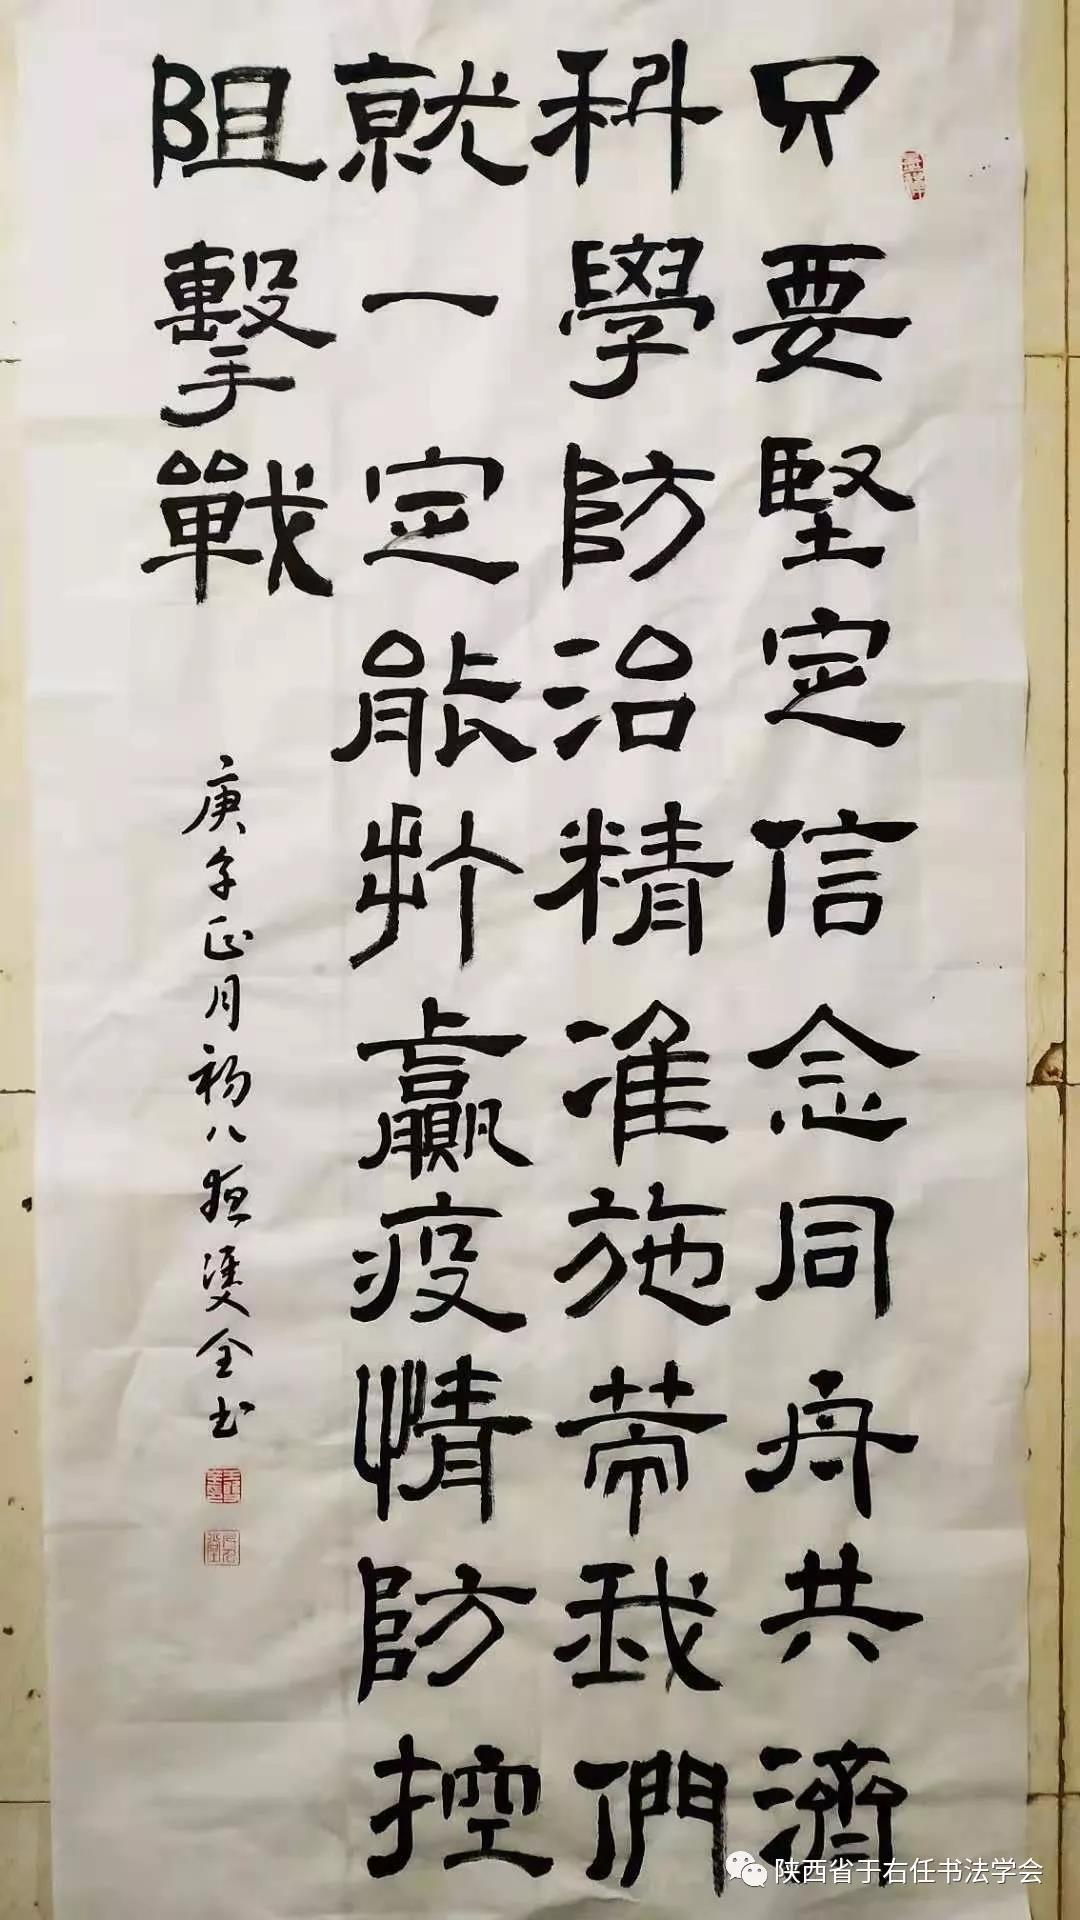 只要堅定信念同舟共濟
科學防治精准施策我們
就一定能打贏疫情防控
阻擊戰
庚子正月初八夜漢雙全书
陕西省于右任书法学会